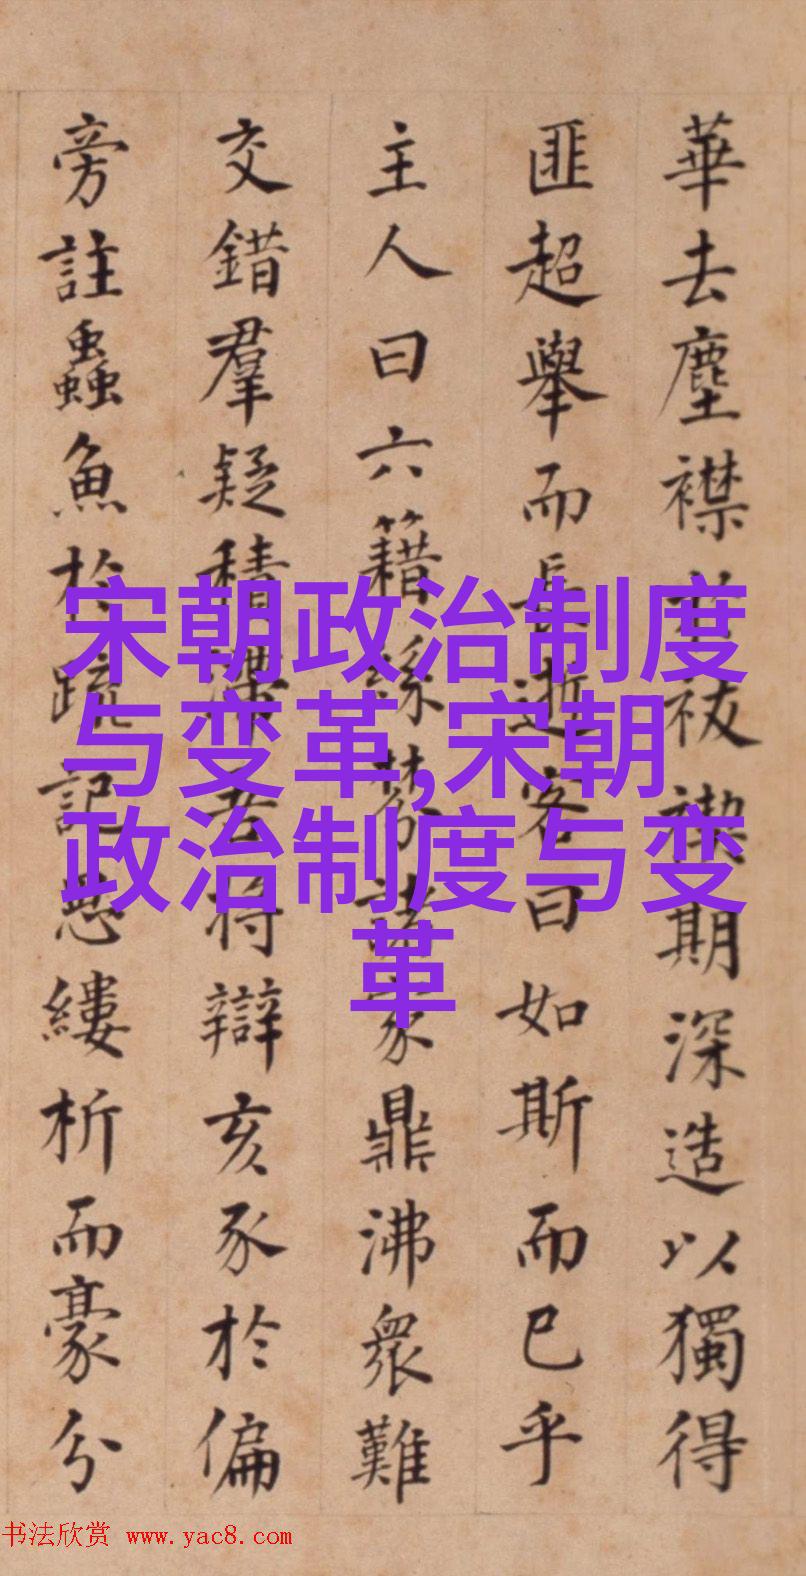 華去塵襟祓禊期深造以獨得
匪超舉而長逝客曰如斯而已乎
主人曰六籍棼諸家鼎沸眾難
交錯羣疑積將辯亥豕於偏
旁註蟲魚於疏記悉縷析而豪分
宋朝政治制度
与变革,宋朝
政治制度与变
革
书法欣赏 www.yac8.com